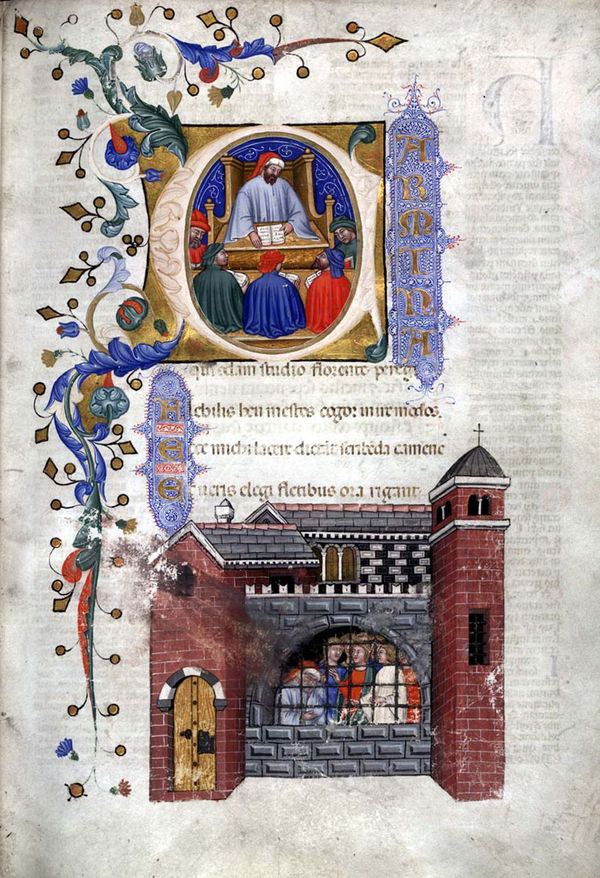 CARMINA
studio florente peregi
FLebilis heu mestos cogor inire modos.
Ecce michi lacere dictāt scribēda camene
Et ueris elegi fletibus ora rigant.